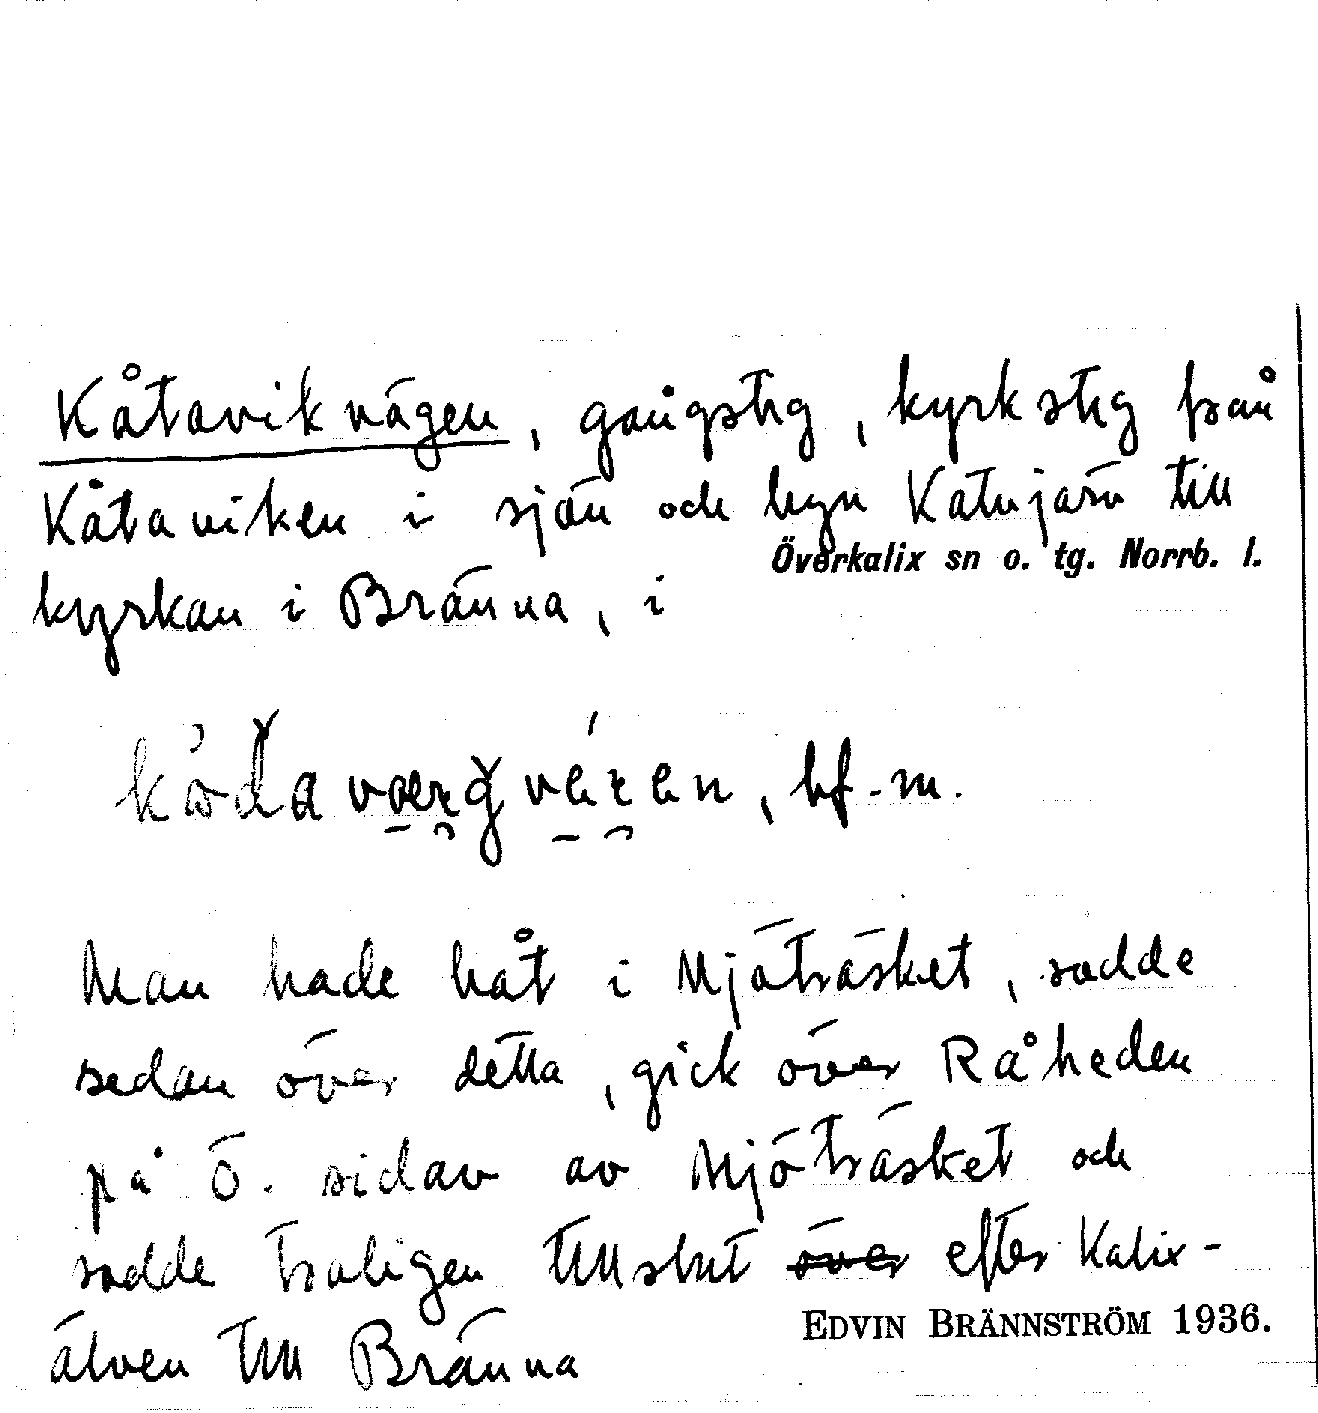 Kåtavikvägen, gångstig, kyrkstig från
Kåtaviken i sjön och byn Katujärv till
Överkalix sn o. tg. Norrb. l.
kyrkan i Bränna, i
bf. m.
Man hade båt i Mjöträsket, rodde
sedan över detta, gick över Råheden
på ö. sidan av Mjöträsket och
rodde troligen tillslut över efter Kalix-
älven till Bränna
EDVIN BRÄNNSTRÖM 1936.